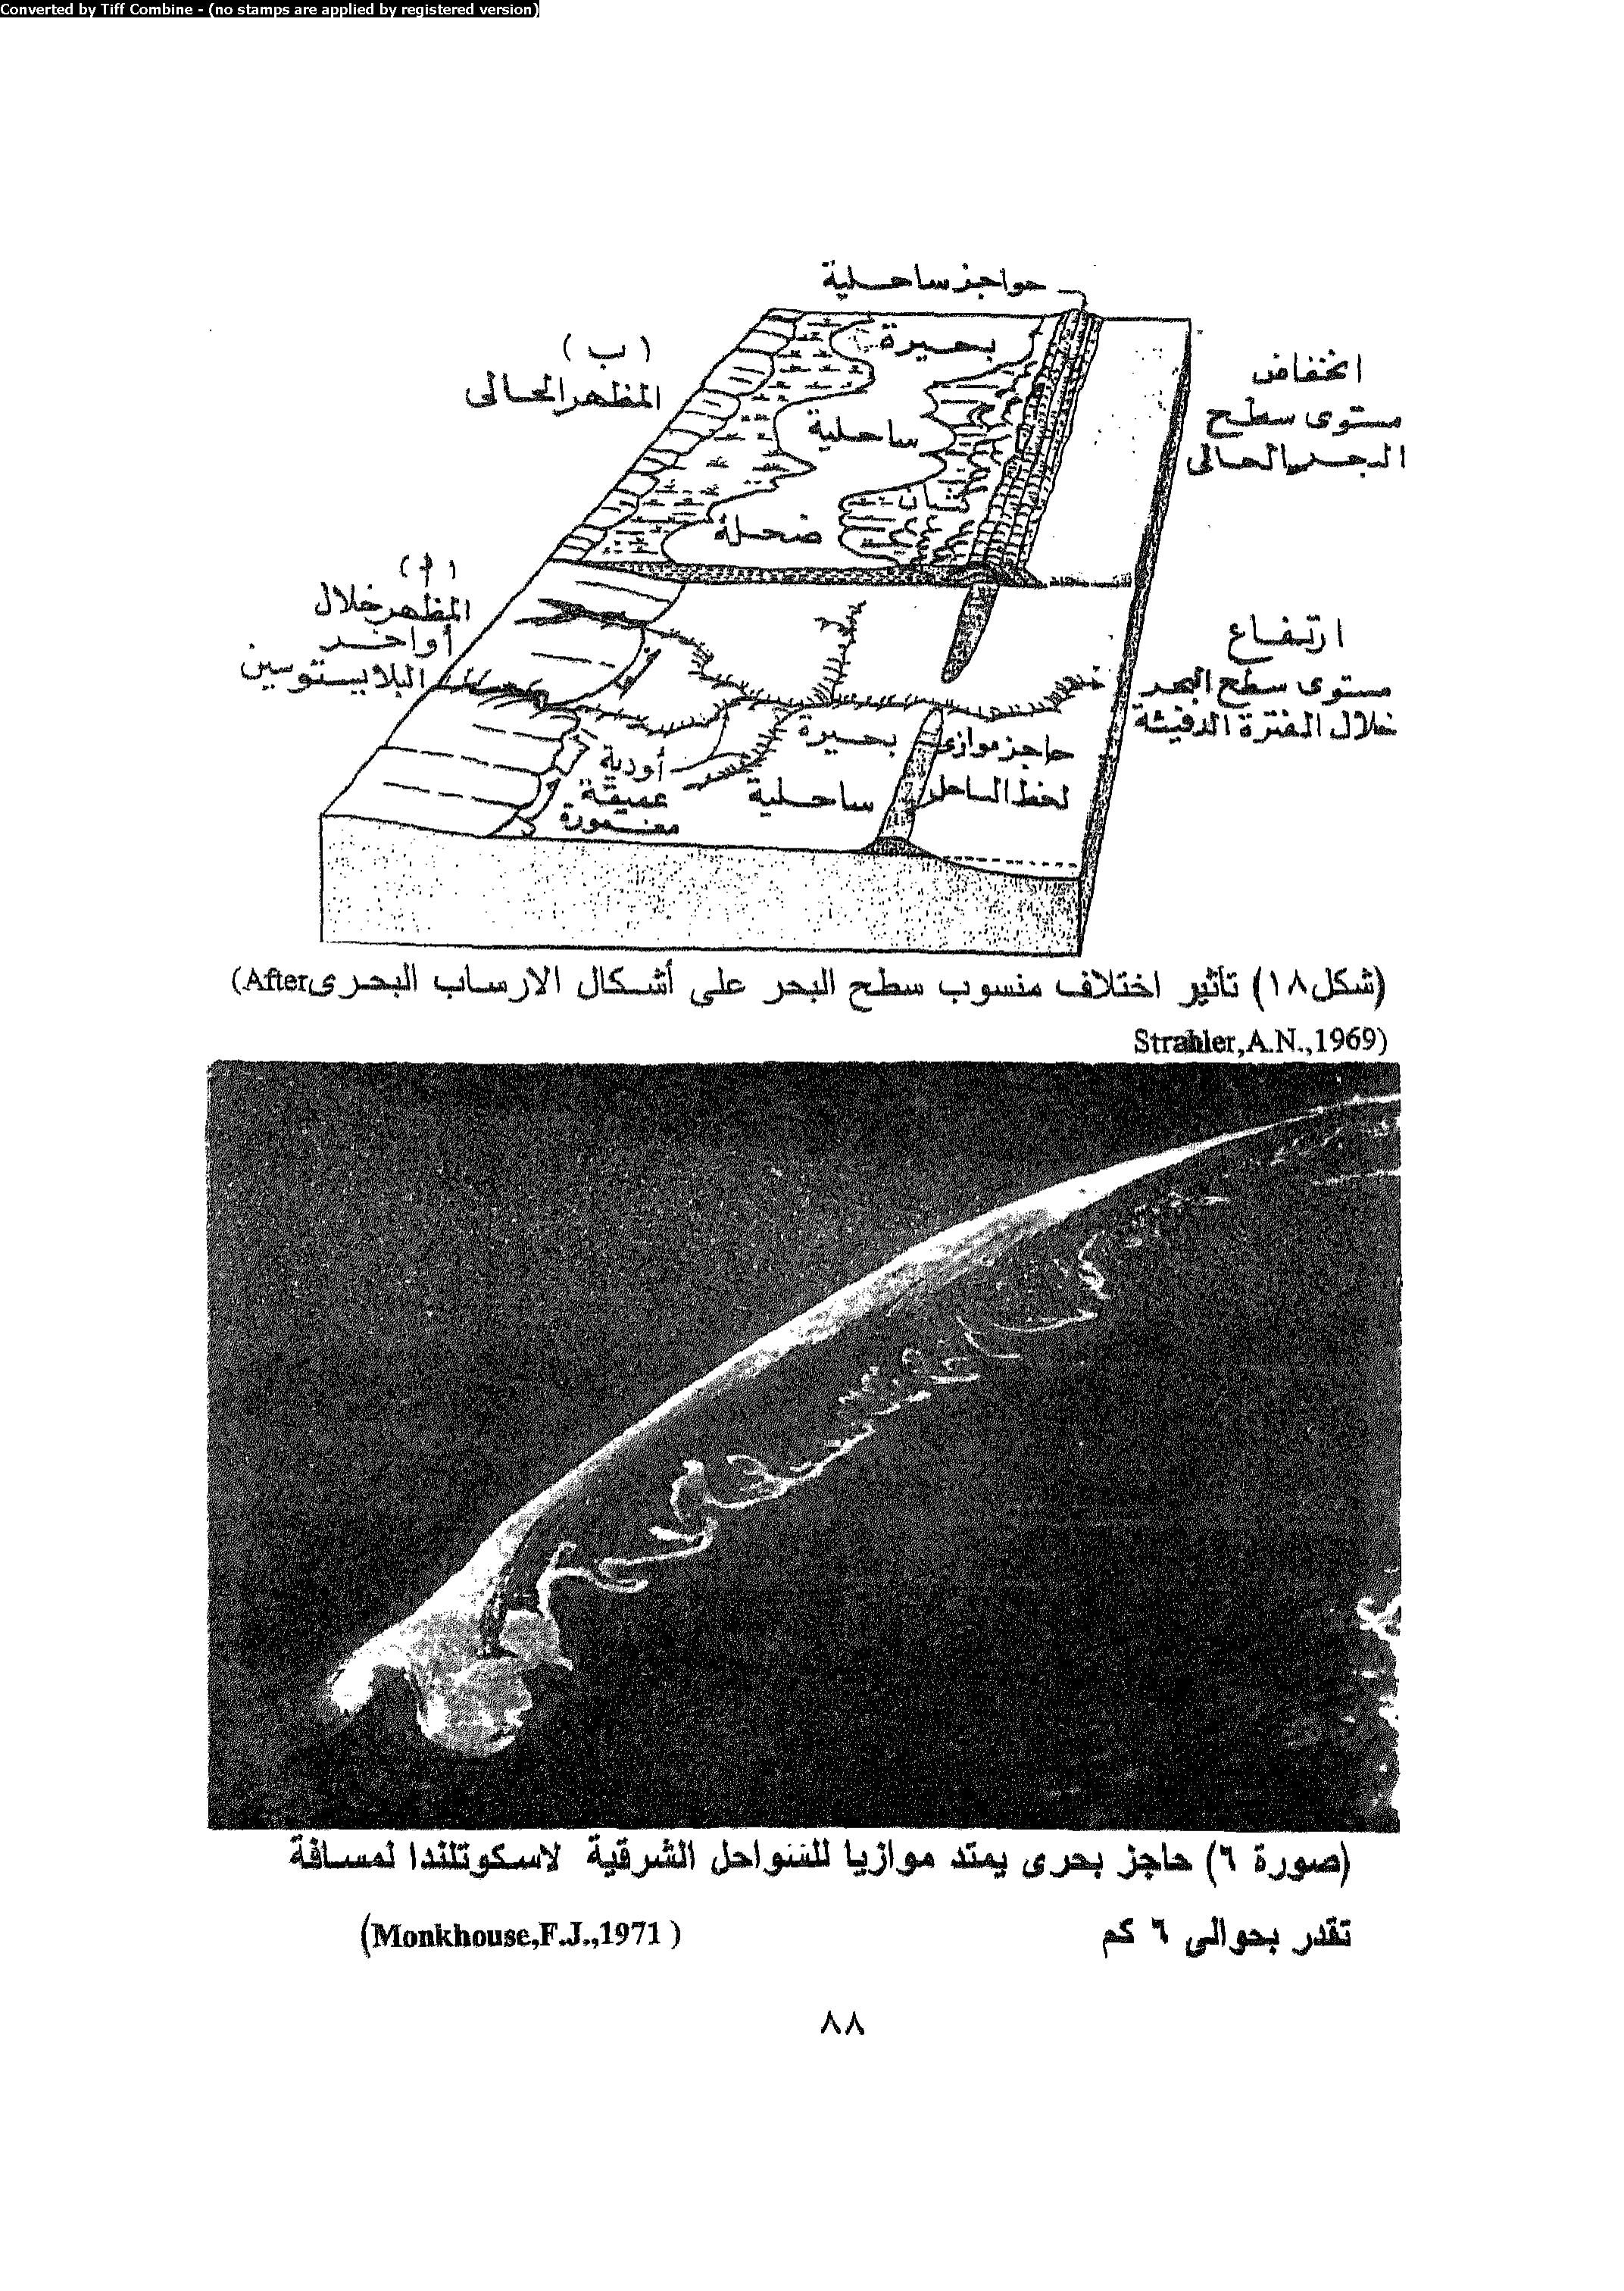 Converted by Tiff Combine - (no stamps are applied by registered version)
حواجز ساحلية
( ب )
المظهر الحالى
بحيرة
ساحلية
ضحلة
كثبان
انخفاض
مستوى سطح
البحر الحالى
( أ )
المظهر خلال
أواخر
البلايستوسين
ارتفاع
مستوى سطح البحر
خلال الفترة الدفيئة
بحيرة
ساحلية
حاجز موازى
لخط الساحل
أودية
عميقة
مغمورة
(شكل ١٨) تأثير اختلاف منسوب سطح البحر على أشكال الارساب البحرى (After
Strahler,A.N.,1969)
(صورة ٦) حاجز بحرى يمتد موازيا للسواحل الشرقية لاسكوتلندا لمسافة
تقدر بحوالى ٦ كم (Monkhouse,F.J.,1971 )
٨٨